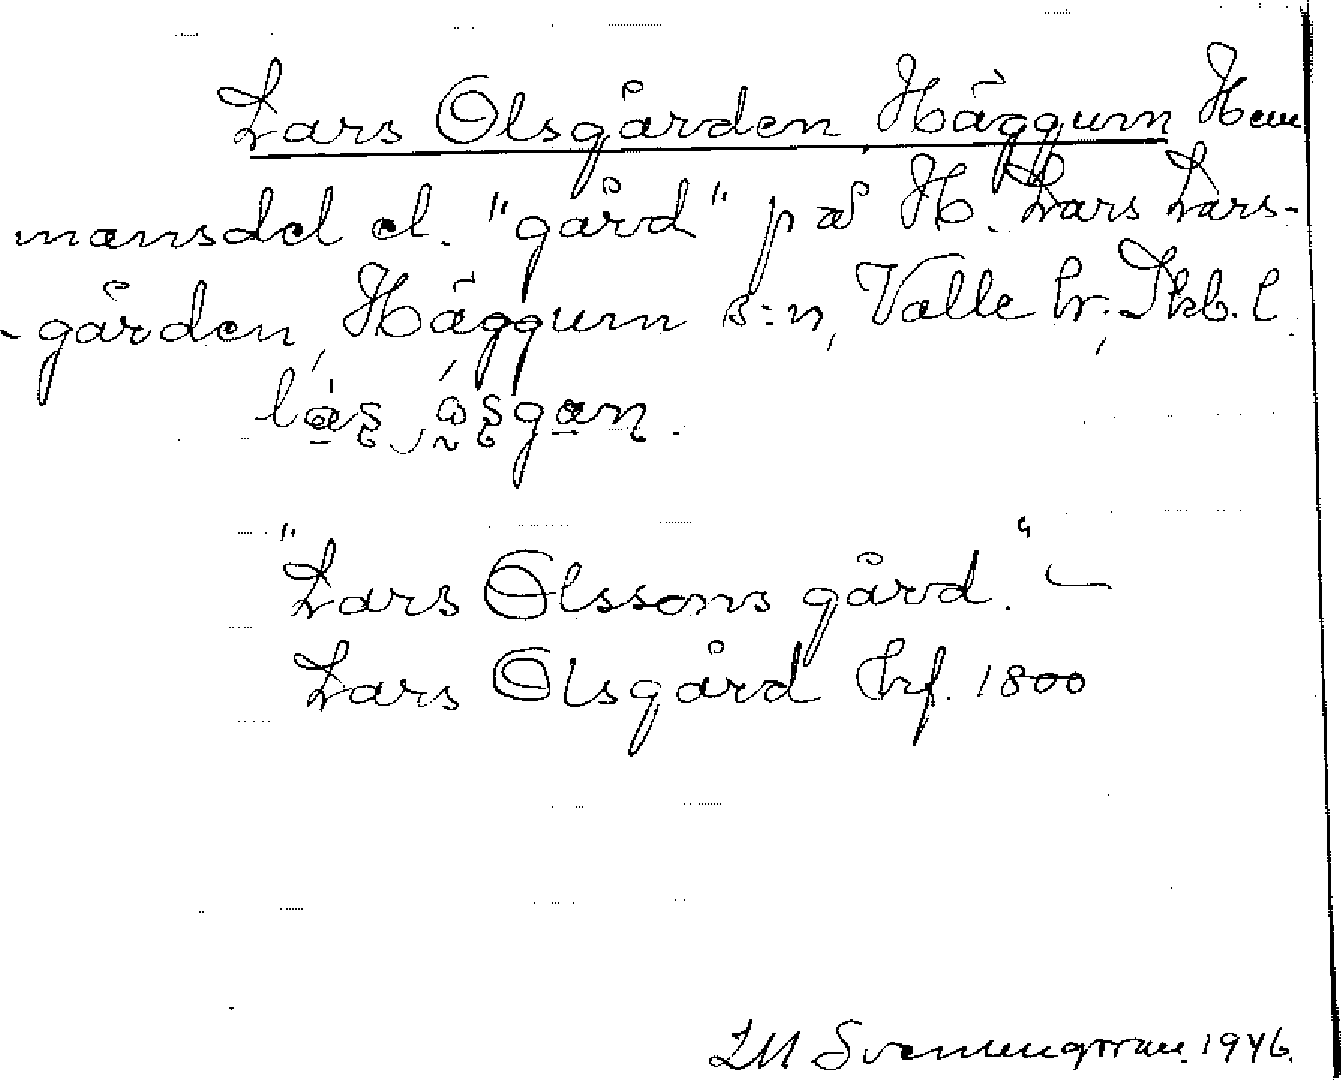 Lars Olsgården Häggum Hem
mansdel el. "gård" på H. Lars Lars-
-gården, Häggum s:n, Valle hr, Skb. l.
"Lars Olssons gård." —
Lars Olsgård hrf. 1800
1946.